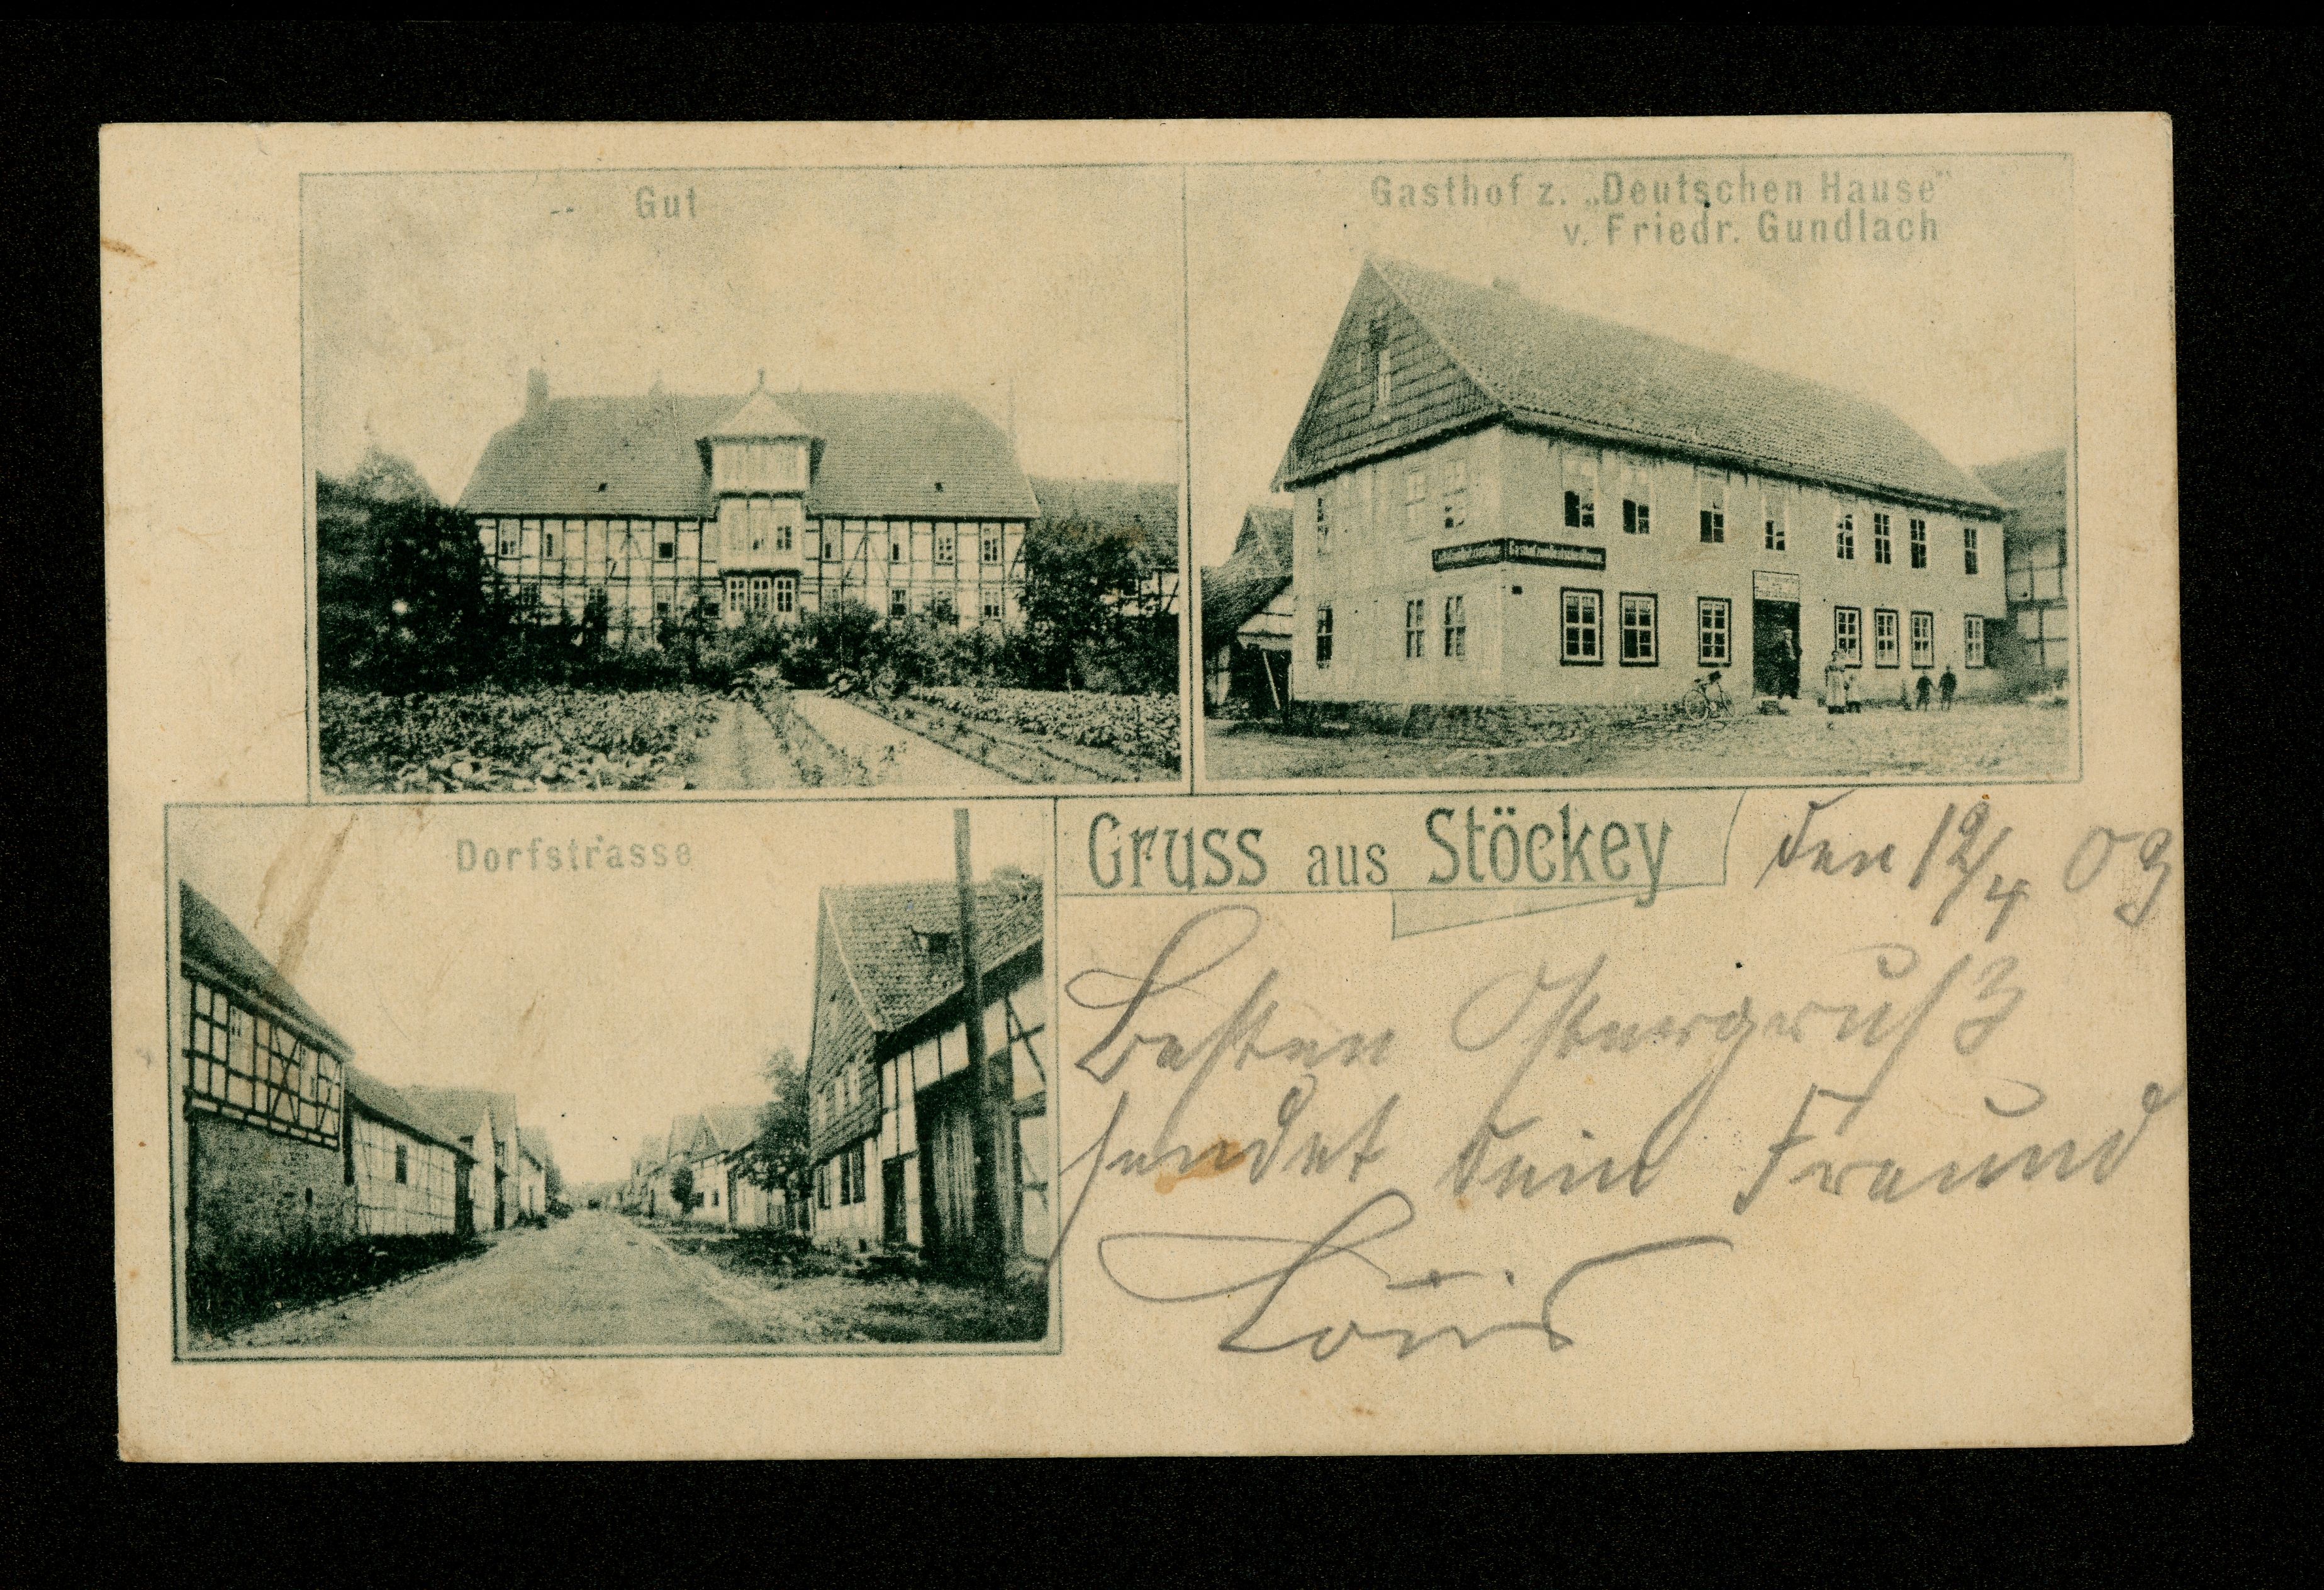 Gut
Gasthof z. „Deutschen Hause"
v. Friedr. Gundlach
Dorfstrasse
Gruss aus Stöckey
den 12/4 09
Besten Ostergruß
sendet dein Freund
Louis